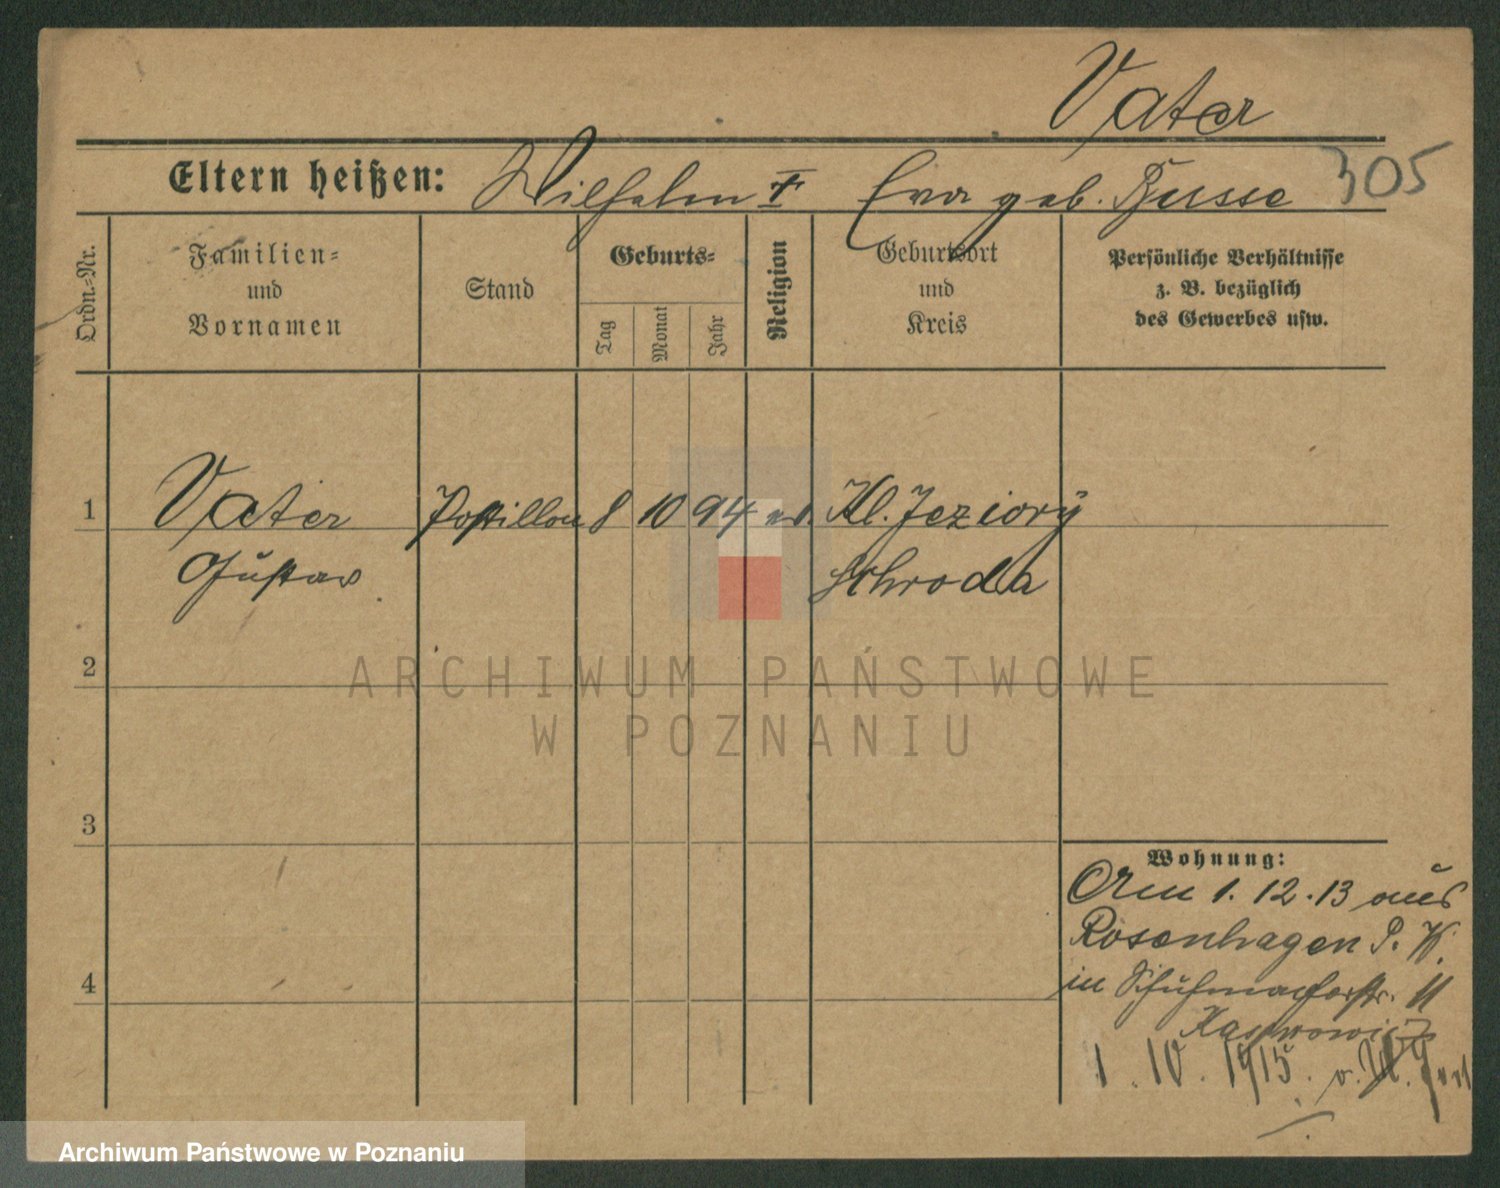 Vater
Eltern heißen: Wilhelm † Eva geb. Busse 305
Ordn.-Nr.
Familien-
und
Vornamen
Stand
Geburts-
Tag
Monat
Jahr
Religion
Geburtsort
und
Kreis
Persönliche Verhältnisse
z. B. bezüglich
des Gewerbes usw.
1 Vater Postillon 8 10 94 ev. Kl. Jeziory
Gustav Schroda
2
ARCHIWUM PAŃSTWOWE
W POZNANIU
3
Wohnung:
Am 1. 12. 13 aus
Rosenhagen P. W.
4
in Schuhmacherstr. 11
Kasprowicz
1. 10. 1915. v.
Archiwum Państwowe w Poznaniu